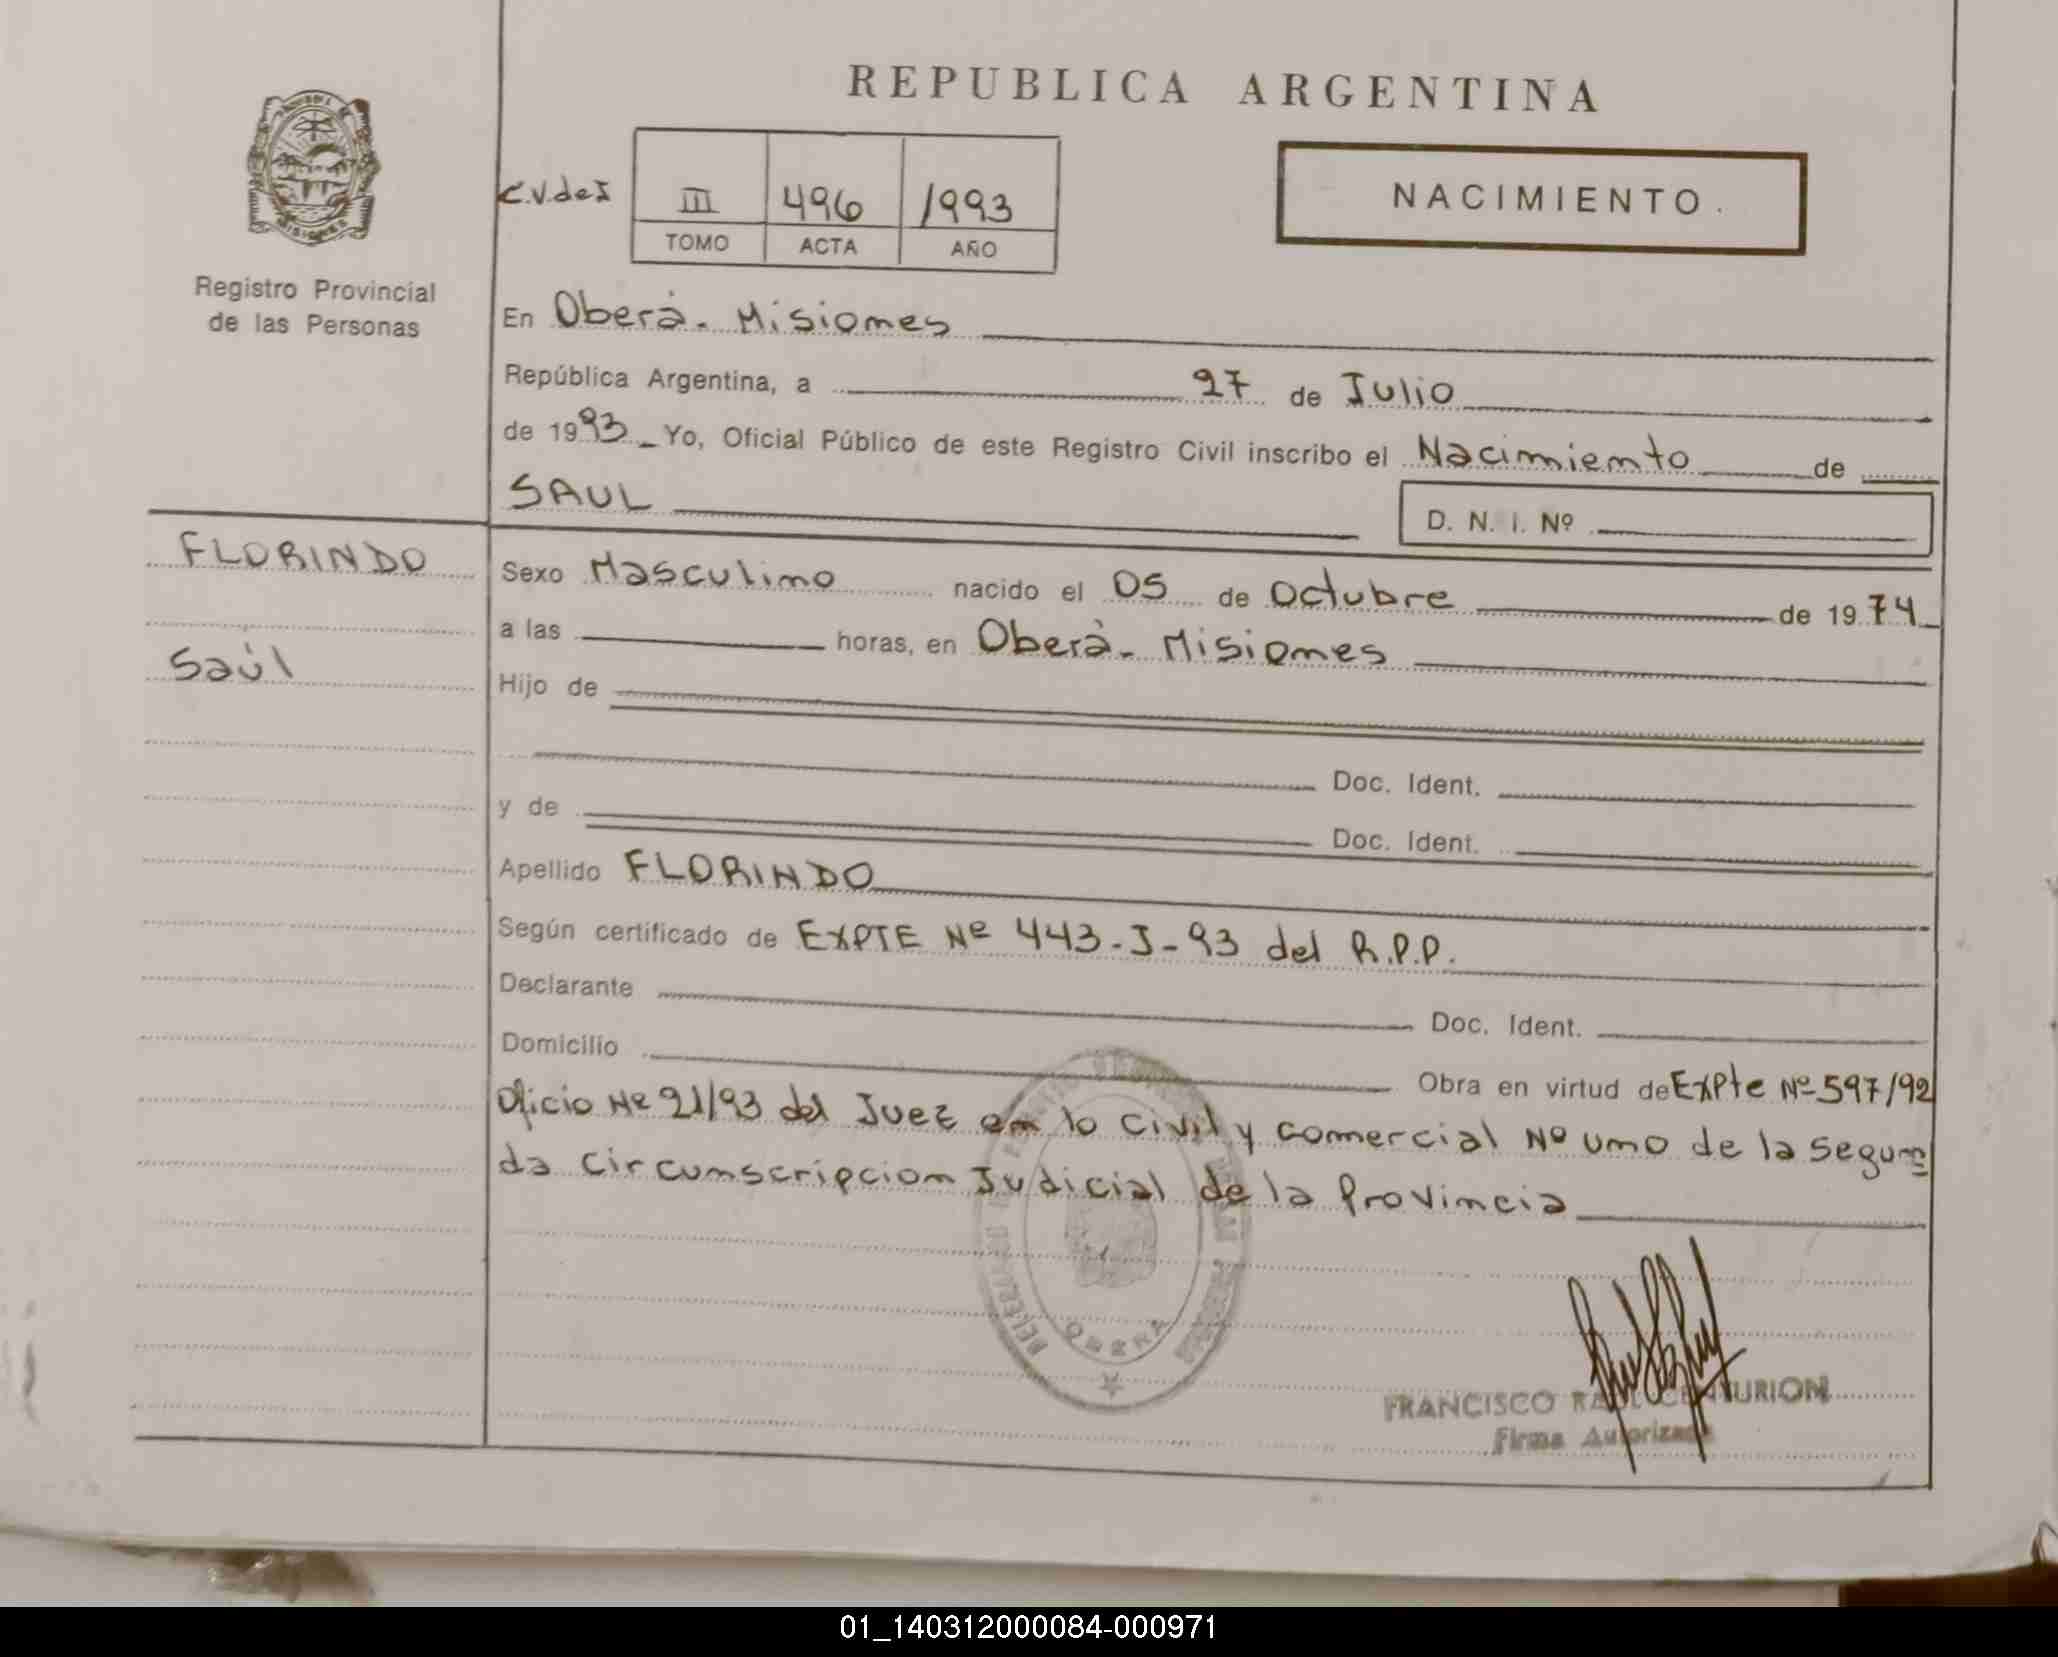 REPUBLICA ARGENTINA
MISIONES
C.V.deI
III 496 1993
TOMO ACTA AÑO
NACIMIENTO.
Registro Provincial
de las Personas
En Oberá. Misiones
República Argentina, a 27 de Julio
de 1993 Yo, Oficial Público de este Registro Civil inscribo el Nacimiento de
SAUL
D. N. I. Nº
FLORINDO
Saúl
Sexo Masculino nacido el 05 de Octubre de 1974
a las horas, en Oberá. Misiones
Hijo de
Doc. Ident.
y de Doc. Ident.
Apellido FLORINDO
Según certificado de EXPTE Nº 443-J-93 del R.P.P.
Declarante Doc. Ident.
Domicilio Obra en virtud de EXPte Nº 597/92
Oficio Nº 21/93 del Juez en lo Civil y comercial Nº uno de la segun
da circunscripcion Judicial de la Provincia
OBERA
FRANCISCO RAUL CENTURION
Firma Autorizada
01_140312000084-000971